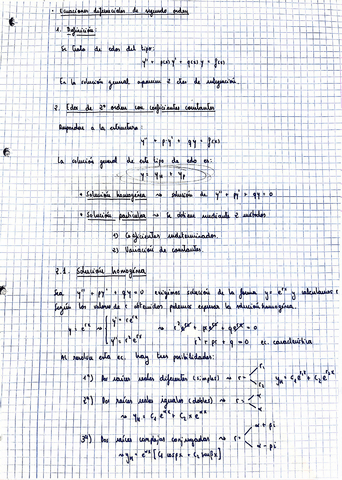 · Ecuaciones diferenciales de segundo orden
1. Definición:
Se trata de edos del tipo:
y'' + p(x) y' + q(x) y = f(x)
En la solución general aparecen 2 ctes de integración.
2. Edos de 2º orden con coeficientes constantes
Responden a la estructura:
y'' + p · y' + q y = f(x)
La solución general de este tipo de edo es:
y = yH + yp
* Solución homogénea → solución de y'' + py' + qy = 0
* Solución particular → Se obtiene mediante 2 métodos
1) Coeficientes indeterminados.
2) Variación de constantes.
2.1. Solución homogénea
Sea y'' + py' + qy = 0 exigimos solución de la forma y = e^rx y calculamos r
Según los valores de r obtenidos podemos expresar la solución homogénea.
y = e^rx → y' = re^rx
y'' = r² e^rx
→ r² e^rx + pr e^rx + q e^rx = 0
r² + pr + q = 0 ec. característica
Al resolver esta ec. hay tres posibilidades:
1ª) Dos raíces reales diferentes (simples) → r = r1 r2 yH = C1 e^r1x + C2 e^r2x
2ª) Dos raíces reales iguales (dobles) → r = α α
→ yH = C1 e^αx + C2 x e^αx
3ª) Dos raíces complejas conjugadas → r = α + βi α - βi
→ yH = e^αx [C1 cos βx + C2 sen βx]